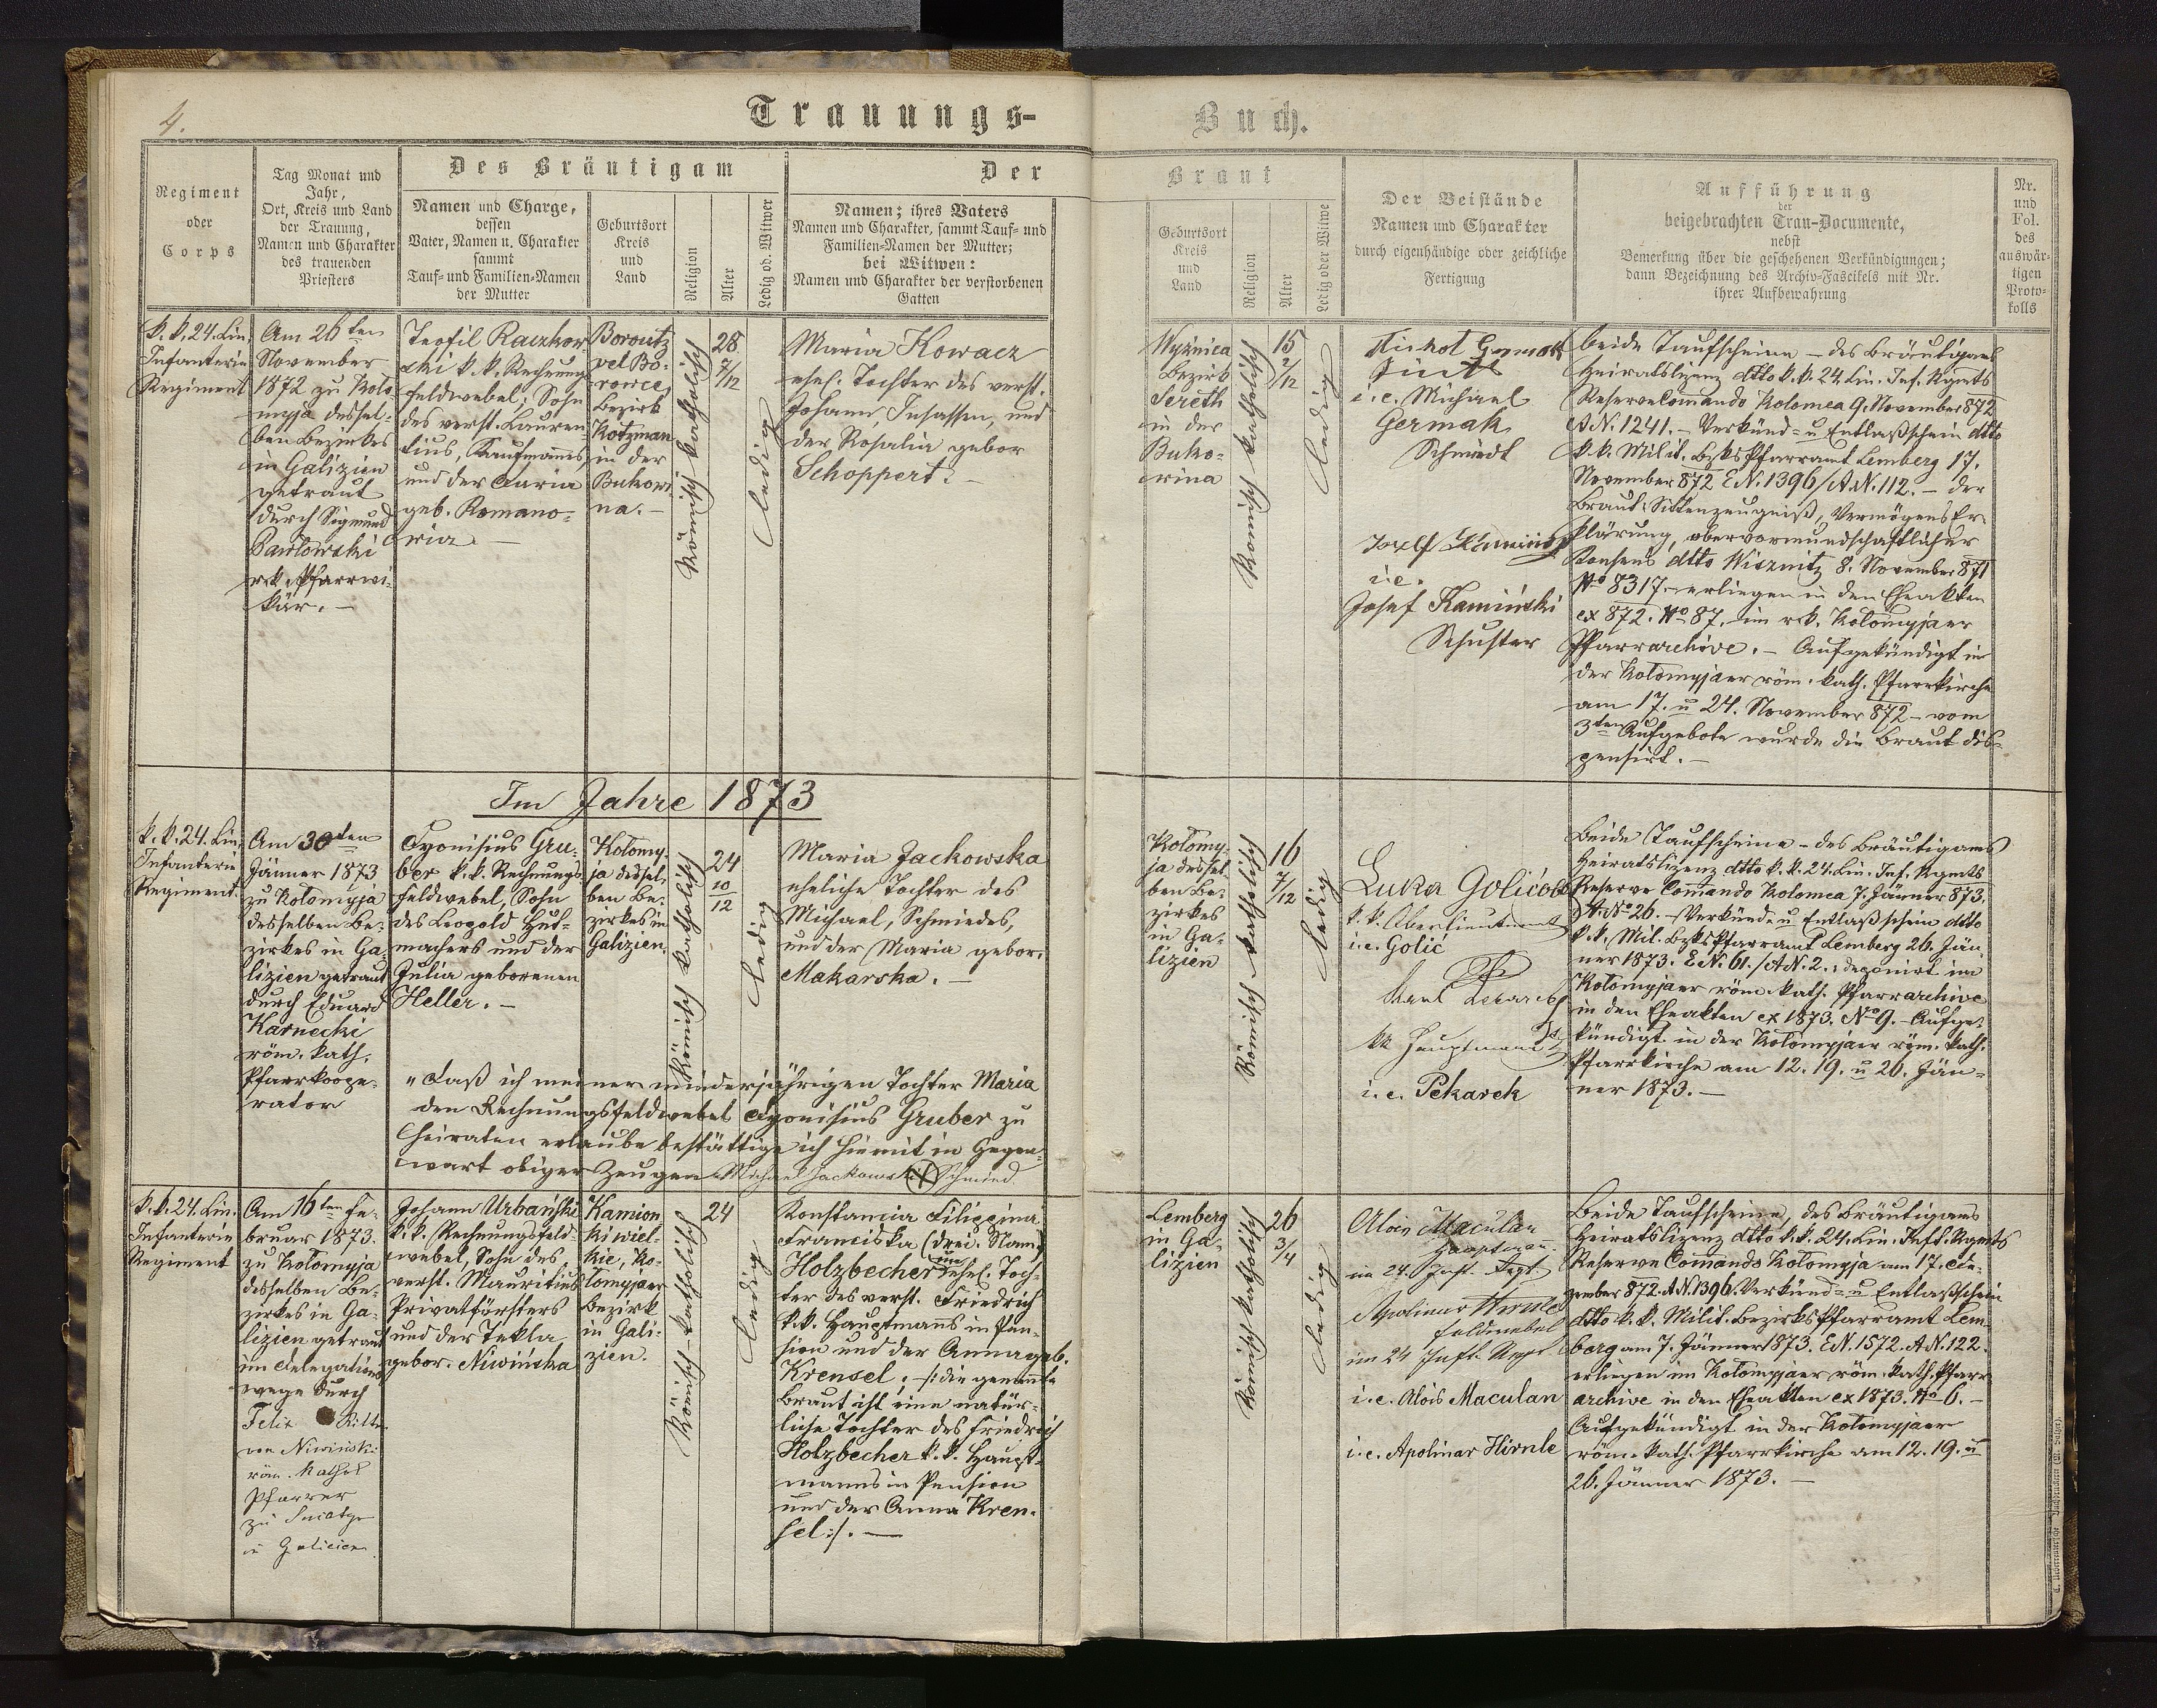 4.
Trauungs-
Buch.
Regiment
oder
Corps
Tag Monat und
Jahr,
Ort, Kreis und Land
der Trauung,
Namen und Charakter
des trauenden
Priesters
Des Bräutigam
Namen und Charge,
dessen
Vater, Namen u. Charakter
sammt
Tauf- und Familien-Namen
der Mutter
Geburtsort
Kreis
und
Land
Religion
Alter
Ledig od. Witwer
Der
Namen; ihres Vaters
Namen und Charakter, sammt Tauf- und
Familien-Namen der Mutter;
bei Witwen:
Namen und Charakter der verstorbenen
Gatten
Braut
Geburtsort
Kreis
und
Land
Religion
Alter
Ledig oder Witwe
Der Beistände
Namen und Charakter
durch eigenhändige oder zeichliche
Fertigung
Aufführung
der
beigebrachten Trau-Documente,
nebst
Bemerkung über die geschehenen Verkündigungen;
dann Bezeichnung des Archiv-Fascikels mit Nr.
ihrer Aufbewahrung
Nr.
und
Fol.
des
auswär-
tigen
Proto-
kolls
k. k. 24. Lin.
Infanterie
Regiment
Am 26ten
November
1872 zu Kolo
myja dessel-
ben Bezirkes
in Galizien
getraut
durch Sigmund
Pawłowski
r. k. Pfarrvi-
kär. –
Teofil Raczkow-
ski k. k. Rechnungs
feldwebel; Sohn
des verst. Lauren-
tius, Kaufmanns,
und der Maria
geb. Romano-
wicz –
Boroutz
vel Bo-
rowce
Bezirk
Kotzman
in der
Bukowi-
na. –
Römisch katholisch
28
7/12
ledig
Maria Kowacz
ehel. Tochter des verst.
Johann, Insassen, und
der Rosalia gebor
Schoppert. –
Wyżnica
Bezirk
Sereth
in der
Buko-
wina
Römisch katholisch
15
2/12
ledig
i. e. Michael
Germak
Schmiedt
Josef Kaminski
i. e.
Josef Kamiński
Schuster
beide Taufscheine – des Bräutigams
Heiratslizenz dtto k. k. 24 Lin. Inf. Rgmts
Reserve Comando Kolomea 9. November 872
A.N. 1241. – Verkünd- u Entlaßschein dtto
k. k. Milit. Bzks Pfarramt Lemberg 17.
November 872 E.N. 1396/A.N. 112. – der
Braut: Sittenzeugniß, Vermögens Er-
klärung, obervormundschaftlicher
Konsens dtto Wisznitz 8. November 871
No 8317. – erliegen in den Eheakten
ex 872. No 87. im r. k. Kolomyjaer
Pfarrarchive. – Aufgekündigt in
der Kolomyjaer röm. kath. Pfarrkirche
am 17. u 24. November 872 – vom
3ten Aufgebote wurde die Braut dis-
pensirt. –
Im Jahre 1873
k. k. 24. Lin.
Infanterie
Regiment.
Am 30ten
Jänner 1873
zu Kolomyja
desselben Be-
zirkes in Ga-
lizien getraut
durch Eduard
Karnecki
röm. kath.
Pfarrkoope-
rator
Dyonisius Gru-
ber k. k. Rechnungs-
feldwebel, Sohn
des Leopold Hut-
machers und der
Julia geborenen
Heller. –
Kolomy-
ja dessel-
ben Be-
zirkes in
Galizien.
Römisch katholisch
24
10/12
ledig
Maria Jackowska
eheliche Tochter des
Michael, Schmiedes,
und der Maria gebor.
Makarska. –
"Daß ich meiner minderjährigen Tochter Maria
den Rechnungsfeldwebel Dyonisius Gruber zu
heiraten erlaube bestättige ich hiemit in Gegen-
wart obiger Zeugen Michael Jackowski Schmied
Kolomy-
ja dessel
ben Be-
zirkes
in Ga-
lizien
Römisch katholisch
16
7/12
ledig
Luka Golić
k. k. Oberlieutenant
i. e. Golić
kk Hauptmann
i. e. Pekarek
Beide Taufscheine – des Bräutigams
Heiratslizenz dtto k. k. 24. Lin. Inf. Rgmts
Reserve Comando Kolomea 7. Jänner 873.
A. No 26. – Verkünd- u Entlaßschein dtto
k. k. Mil. Bzks Pfarramt Lemberg 26. Jän-
ner 1873. E.N. 61./A.N. 2.; deponirt im
Kolomyjaer röm. kath. Pfarrarchive
in den Eheakten ex 1873. No 9. – Aufge-
kündigt in der Kolomyjaer röm. kath.
Pfarrkirche am 12. 19. u 26. Jän-
ner 1873. –
k. k. 24. Lin.
Infanterie
Regiment
Am 16ten Fe-
bruar 1873.
zu Kolomyja
desselben Be-
zirkes in Ga-
lizien getraut
im Delegations
wege durch
Felix Ritter
von Niwiński
röm. kathol
Pfarrer
zu Sniatyn
in Galicien.
Johann Urbański
k. k. Rechnungsfeld-
webel, Sohn des
verst. Mauritius
Privatförsters
und der Tekla
gebor. Niwińska
Kamion-
ki wiel-
kie, Ko-
lomyjaer
Bezirk
in Gali-
zien.
Römisch-katholisch
24
ledig
Konstancia Filippina
Franciska (drei. Nam)
Holzbecher unehel. Toch-
ter des verst. Friedrich
k. k. Hauptmanns in Pen-
sion und der Anna geb.
Krensel; –/: die genannte
Braut ist eine natür-
liche Tochter des Friedrich
Holzbecher k. k. Haupt-
manns in Pension
und der Anna Kren-
sel :/. –
Lemberg
in Ga-
lizien
Römisch katholisch
26
3/4
ledig
Alois Maculan
Hauptmann
im 24. Inft. Regt
Apolinar Hirnle
Feldwebel
im 24 Inft. Regt
i. e. Alois Maculan
i. e. Apolinar Hirnle
Beide Taufscheine, des Bräutigams
Heiratslizenz dtto k. k. 24. Lin. Inft. Rgmts
Reserve Comando Kolomyja am 17. De-
zember 872. A.N. 1396. Verkünd- u Entlaßschein
dtto k. k. Milit. Bezirks Pfarramt Lem-
berg am 7. Jänner 1873. E.N. 1572. A.N. 122.
erliegen im Kolomyjaer röm. kath. Pfarr
archive in den Eheakten ex 1873. No 6. –
Aufgekündigt in der Kolomyjaer
röm. kath. Pfarrkirche am 12. 19. u
26. Jänner 1873. –